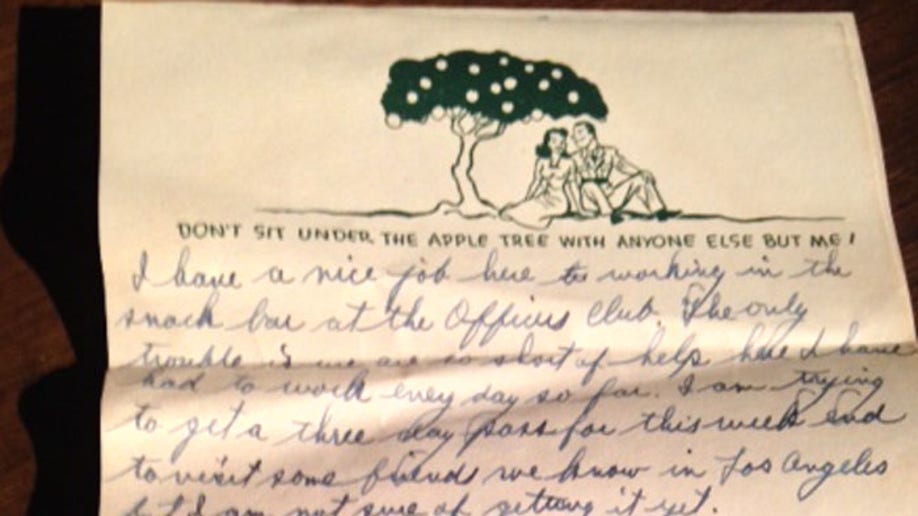 DON'T SIT UNDER THE APPLE TREE WITH ANYONE ELSE BUT ME!
I have a nice job here working in the
snack bar at the Officers Club. The only
trouble is we are so short of help here I have
had to work every day so far. I am trying
to get a three day pass for this week end
to visit some friends we know in Los Angeles
but I am not sure of getting it yet.